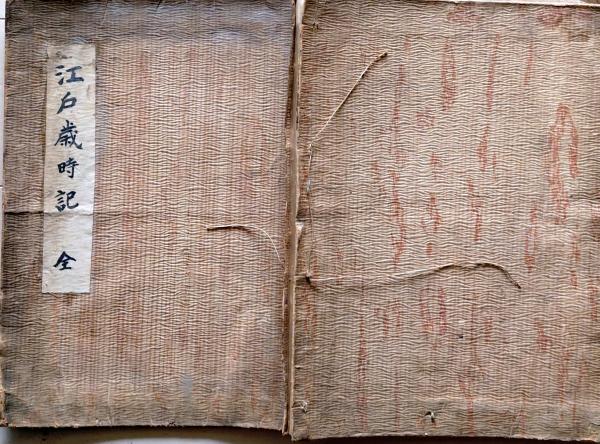 江戸歳時記 全